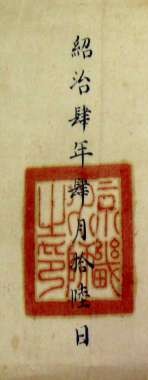 紹治肆年肆月拾陸日